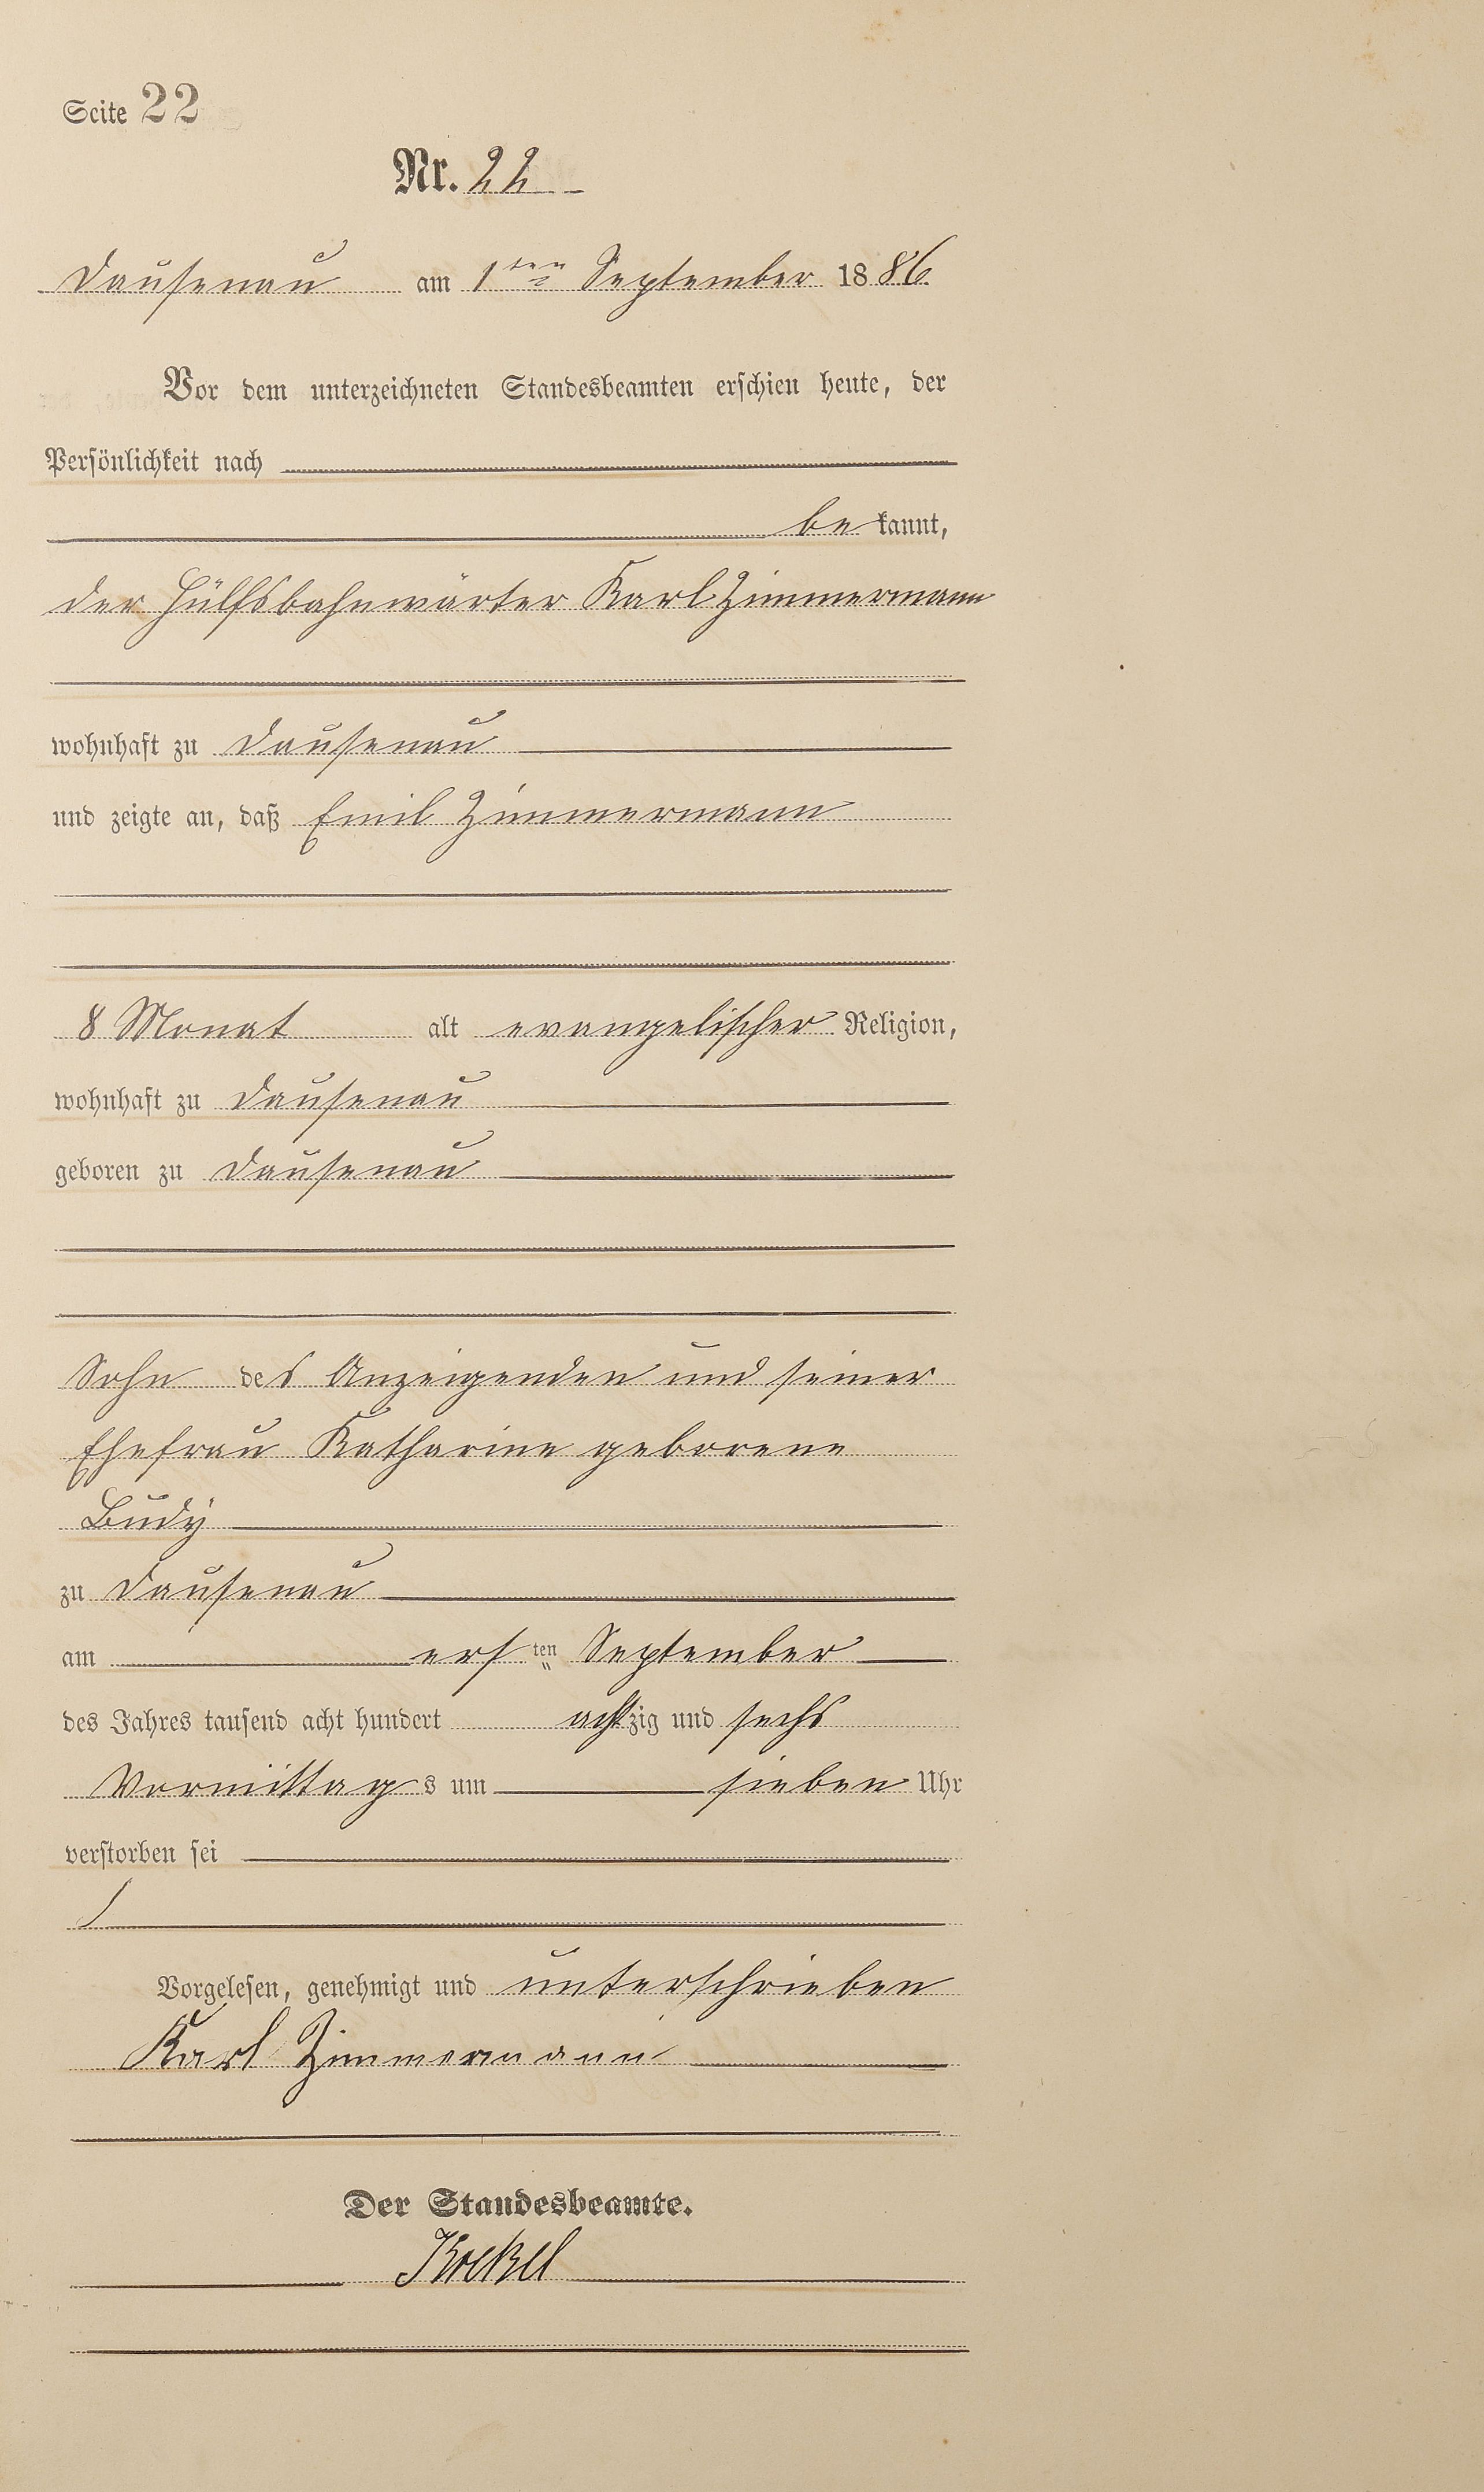 Seite 22
Nr. 22
Dausenau am 1ten September 1886.
Vor dem unterzeichneten Standesbeamten erschien heute, der
Persönlichkeit nach
bekannt,
der Hülfsbahnwärter Karl Zimmermann
wohnhaft zu Dausenau
und zeigte an, daß Emil Zimmermann
8 Monat alt evangelischer Religion,
wohnhaft zu Dausenau
geboren zu Dausenau
Sohn des Anzeigenden und seiner
Ehefrau Katharine geborene
Budÿ
zu Dausenau
am ersten September
des Jahres tausend acht hundert achtzig und sechs
Vormittags um sieben Uhr
verstorben sei
Vorgelesen, genehmigt und unterschrieben
Karl Zimmermann
Der Standesbeamte.